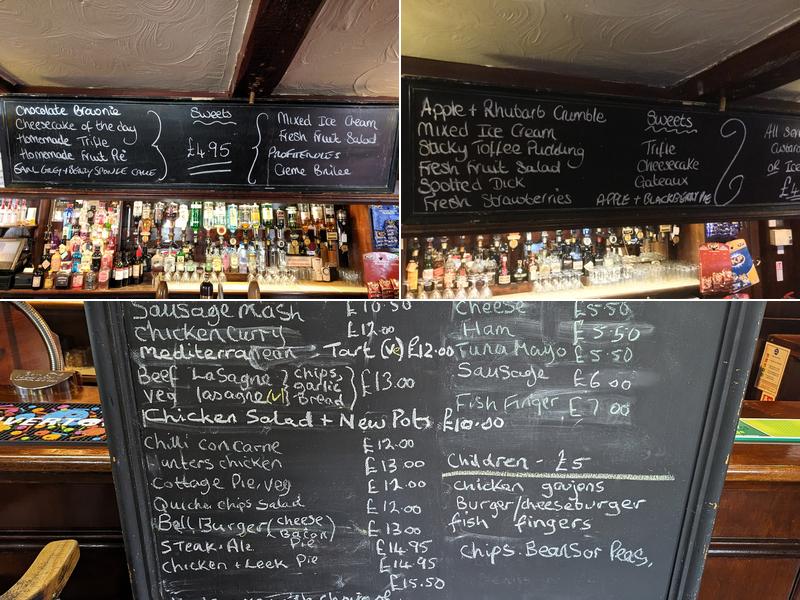 Chocolate Brownie
Cheesecake of the day
Homemade Trifle
Homemade Fruit Pie
EARL GREY + BERRY SPONGE CAKE
Sweets
£4.95
Mixed Ice Cream
Fresh Fruit Salad
PROFITEROLES
Creme Brulee
Apple + Rhubarb Crumble
Mixed Ice Cream
Sticky Toffee Pudding
Fresh Fruit Salad
Spotted Dick
Fresh Strawberries
Sweets
Trifle
Cheesecake
Gateaux
APPLE + BLACKBERRY PIE
All
or Ice
£4
Sausage Mash £10.50
Chicken Curry £12.00
Mediterranean Tart (v) £12.00
Beef Lasagne chips,
veg lasagne (v) garlic bread £13.00
Chicken Salad + New Pots £10.00
Chilli Con Carne £12.00
unters chicken £13.00
Cottage Pie, veg £12.00
Quiche chips Salad £12.00
Bell Burger (cheese Bacon) £13.00
Steak + Ale Pie £14.95
Chicken + Leek Pie £14.95
£15.50
Cheese £5.50
Ham £5.50
Tuna Mayo £5.50
Sausage £6.00
Fish Finger £7.00
Children - £5
chicken goujons
Burger/cheeseburger
fish fingers
chips. Beans or Peas,